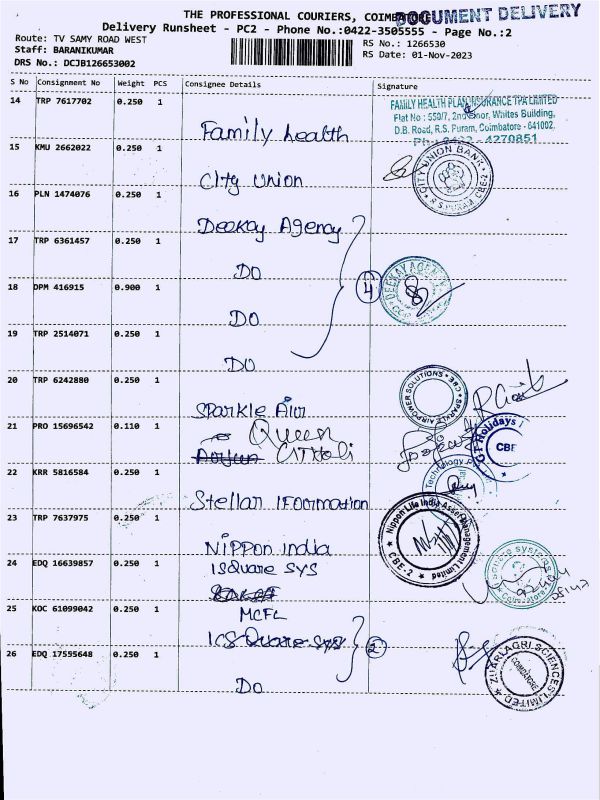 THE PROFESSIONAL COURIERS, COIMBATORE
DOCUMENT DELIVERY
Delivery Runsheet - PC2 - Phone No.:0422-3505555 - Page No.:2
Route: TV SAMY ROAD WEST
RS No.: 1266530
Staff: BARANIKUMAR
RS Date: 01-Nov-2023
DRS No.: DCJB126653002
S No Consignment No Weight PCS Consignee Details Signature
14 TRP 7617702 0.250 1
Family health
FAMILY HEALTH PLAN INSURANCE TPA LIMITED
Flat No : 550/7, 2nd Floor, Whites Building,
D.B. Road, R.S. Puram, Coimbatore - 641002.
4270851
15 KMU 2662022 0.250 1
City Union
CITY UNION BANK
R.S. PURAM, CBE-2
16 PLN 1474076 0.250 1
Deekay Agency
17 TRP 6361457 0.250 1
DO
4
DEEKAY AGENCY
18 DPM 416915 0.900 1
DO
19 TRP 2514071 0.250 1
DO
20 TRP 6242880 0.250 1
Sparkle Air
SPARKLE AIRPOWER SOLUTIONS * CBE *
21 PRO 15696542 0.110 1
Queen
Holidays
CBE
22 KRR 5816584 0.250 1
Stellar IFormation
Technology
23 TRP 7637975 0.250 1
Nippon India
Nippon Life India Asset Management Limited
CBE-2
24 EDQ 16639857 0.250 1
ISquare SYS
Square Systems
Coimbatore
25 KOC 61099042 0.250 1
MCFL
ICSQuare SYS
2
26 EDQ 17555648 0.250 1
DO
ZUARI AGRI SCIENCES LIMITED
COIMBATORE